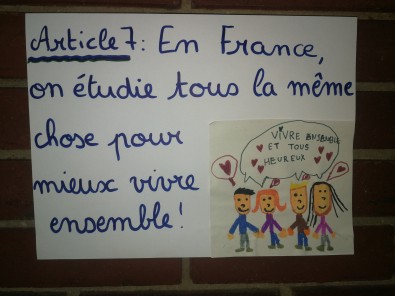 Article 7: En France,
on étudie tous la même
chose pour
mieux vivre
ensemble!
VIVRE ENSEMBLE
ET TOUS
HEUREUX